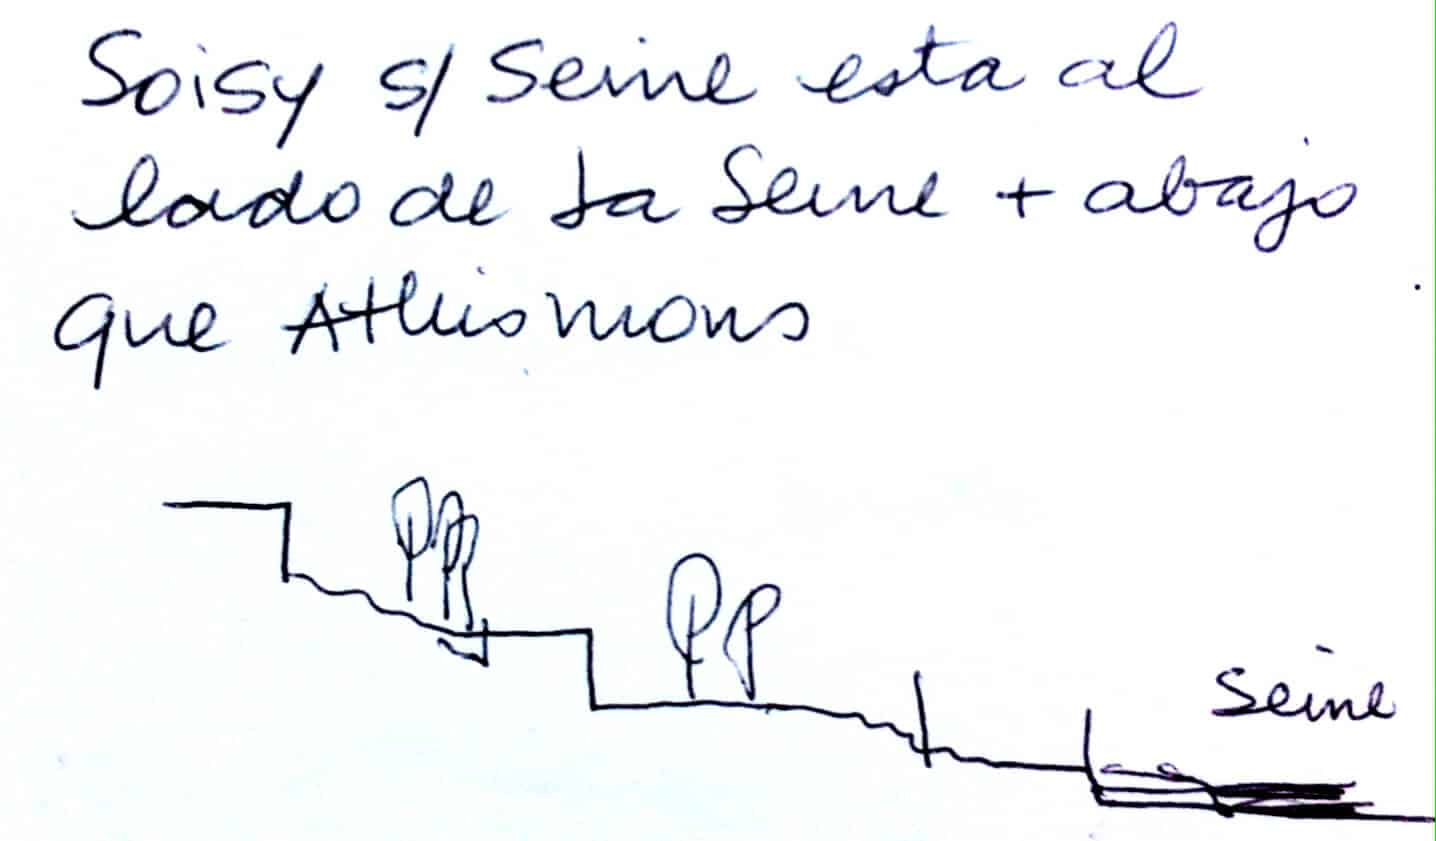 Soisy s/ Seine esta al
lado de la Seine + abajo
que Athismons
Seine